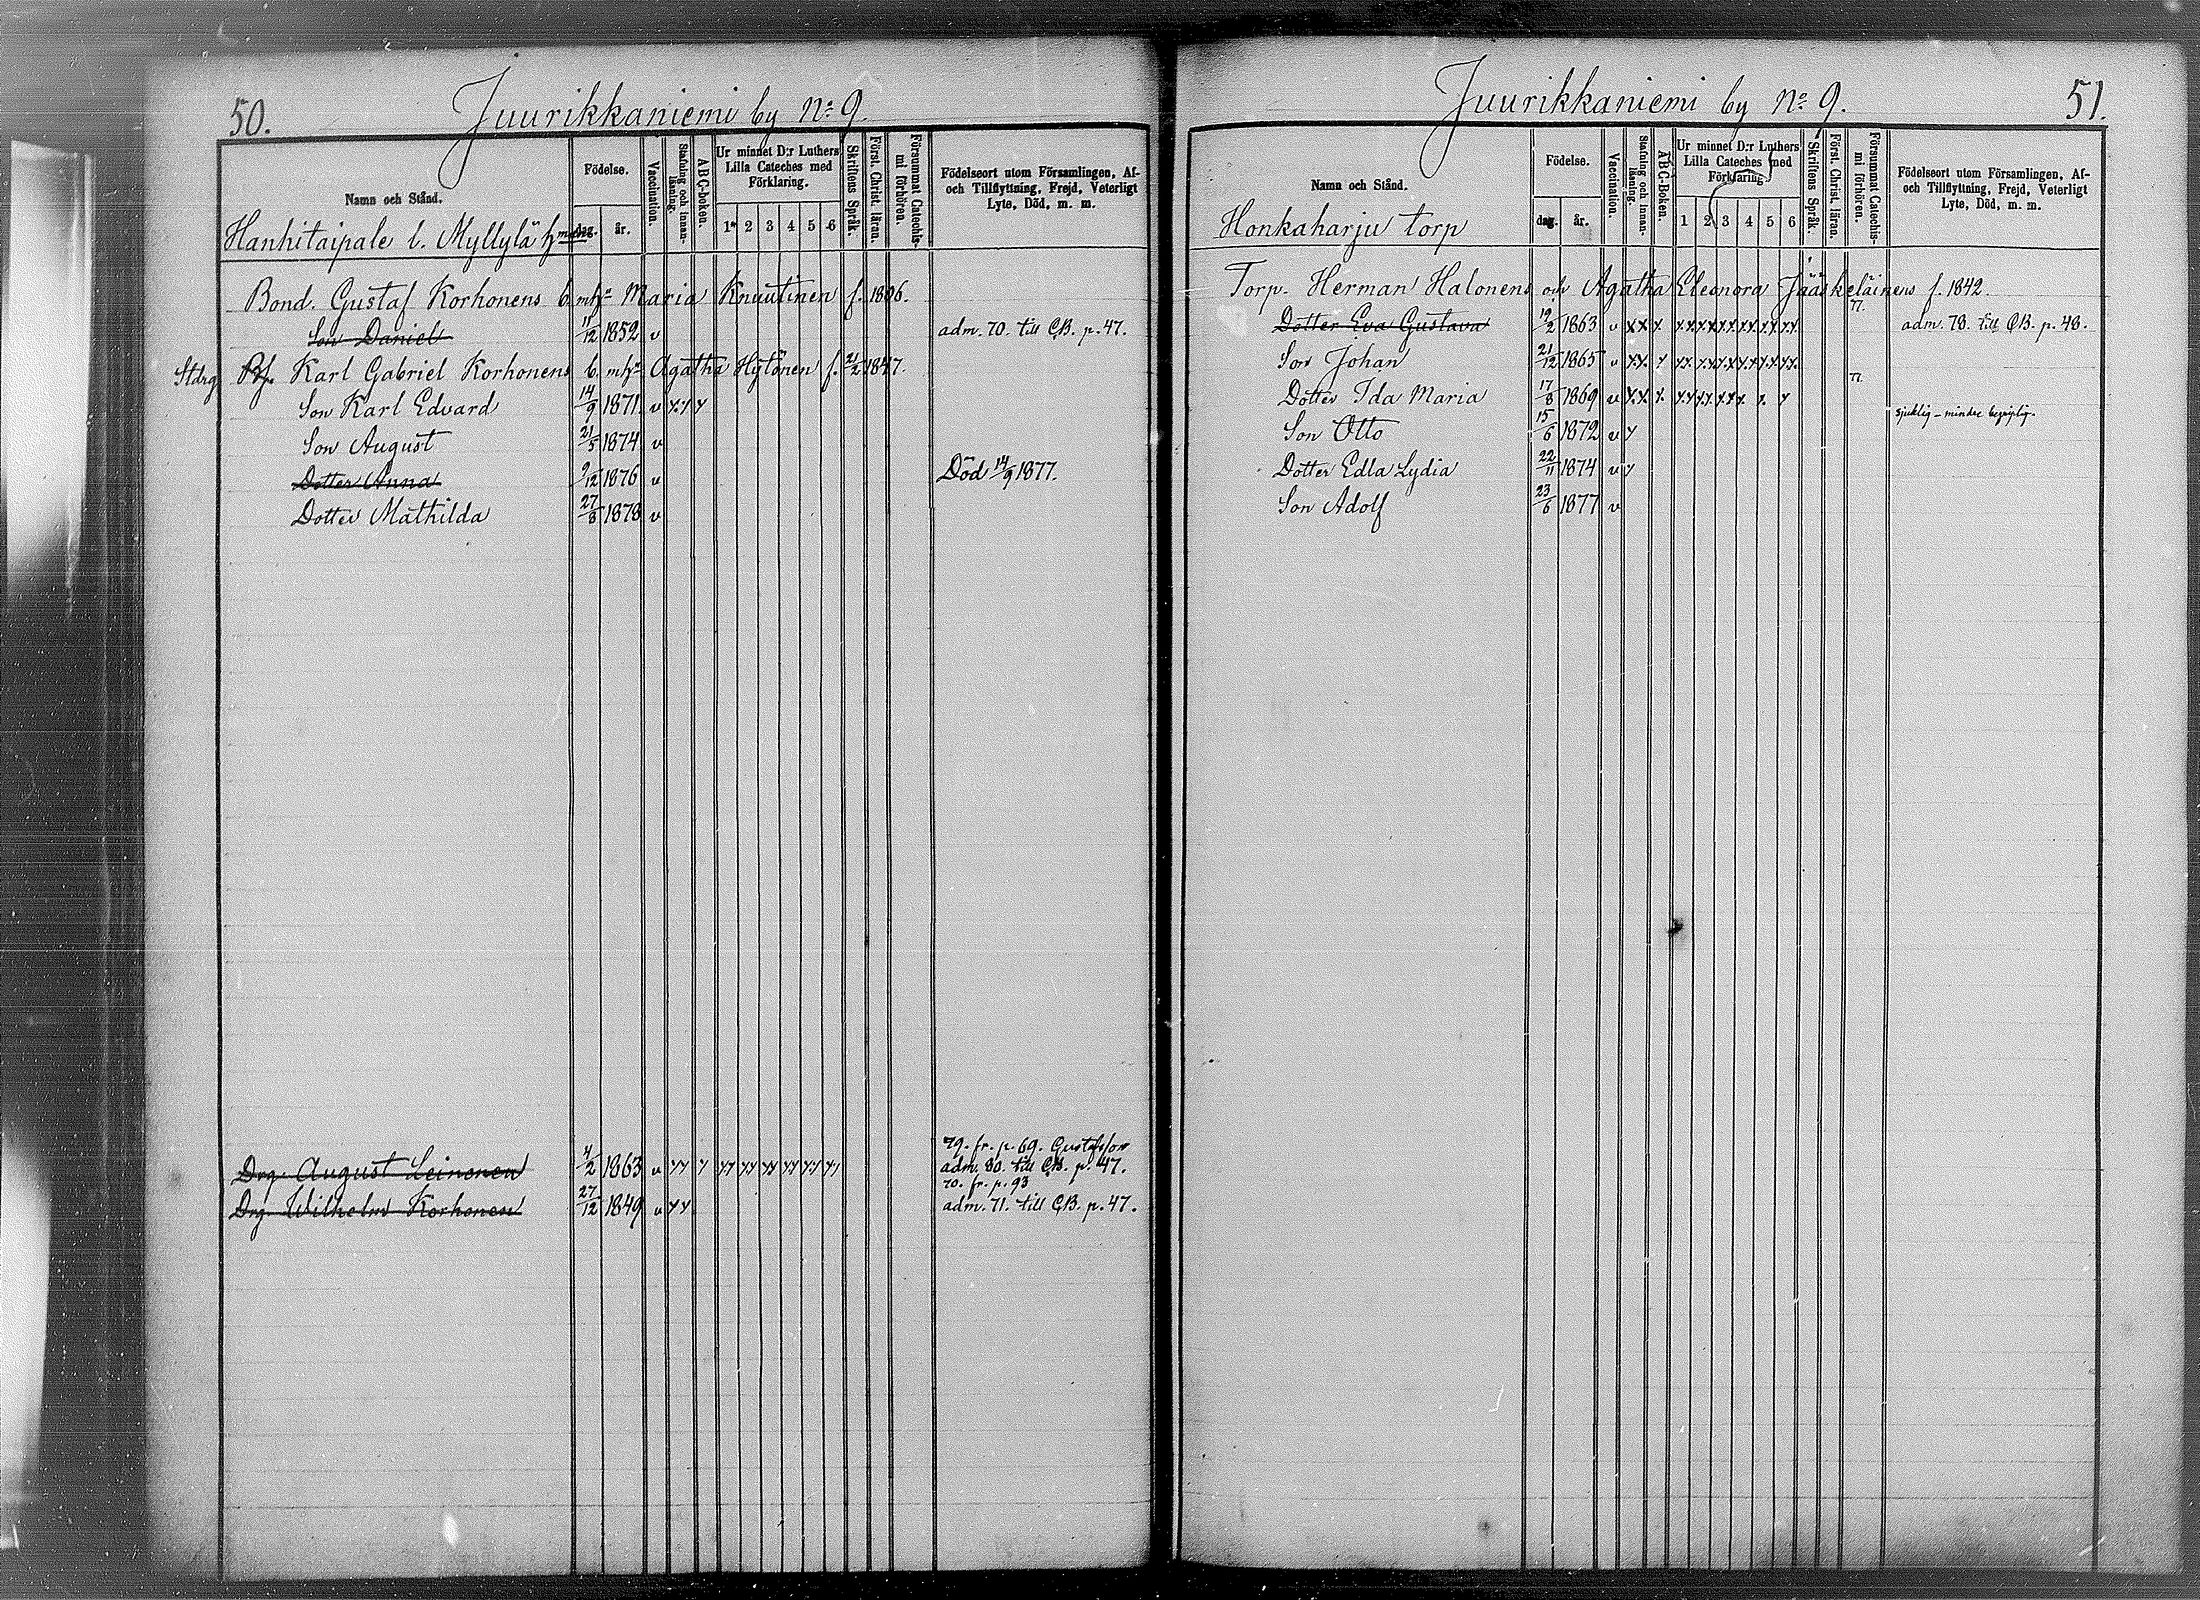 50.
Juurikkaniemi by No 9.
Namn och Stånd.
Födelse.
dag. år.
Vaccination.
Stafning och innan-läsning.
ABC-boken.
Ur minnet D:r Luthers Lilla Cateches med Förklaring.
1 2 3 4 5 6
Skriftens Språk.
Först. Christ. läran.
Försummat Catechis-mi förhören.
Födelseort utom Församlingen, Af- och Tillflyttning, Frejd, Veterligt Lyte, Död, m. m.
Hanhitaipale l. Myllylä
Bond. Gustaf Korhonens b. m hu Maria Knuutinen f. 1806.
Son Daniel 11/12 1852 v adm. 70. till CB. p. 47.
Stdrg Bf. Karl Gabriel Korhonens b. m hu Agatha Hytönen f. 21/2 1847.
Son Karl Edvard 14/9 1871 v
Son August 21/5 1874 v
Dotter Anna 9/12 1876 v Död 14/9 1877.
Dotter Mathilda 27/8 1878 v
79. fr. p. 69. Gustafsson
Drg. August Leinonen 4/2 1863 v adm. 80. till CB. p. 47.
70. fr. p. 93
Drg. Wilhelm Korhonen 27/12 1849 v adm. 71. till CB. p. 47.
Juurikkaniemi by No 9.
51.
Namn och Stånd.
Födelse.
dag. år.
Vaccination.
Stafning och innan-läsning.
ABC-Boken.
Ur minnet D:r Luthers Lilla Cateches med Förklaring
1 2 3 4 5 6
Skriftens Språk.
Först. Christ. läran.
Försummat Catechis-mi förhören.
Födelseort utom Församlingen, Af- och Tillflyttning, Frejd, Veterligt Lyte, Död, m. m.
Honkaharju torp
Torp. Herman Halonens och Agatha Eleonora Jääskeläinens f. 1842.
Dotter Eva Gustava 19/2 1863 v 77. adm. 78. till CB. p. 48.
Son Johan 21/12 1865 v
Dotter Ida Maria 17/8 1869 v 77.
sjuklig - mindre begriplig.
Son Otto 15/6 1872 v
Dotter Edla Lydia 22/11 1874 v
Son Adolf 23/6 1877 v